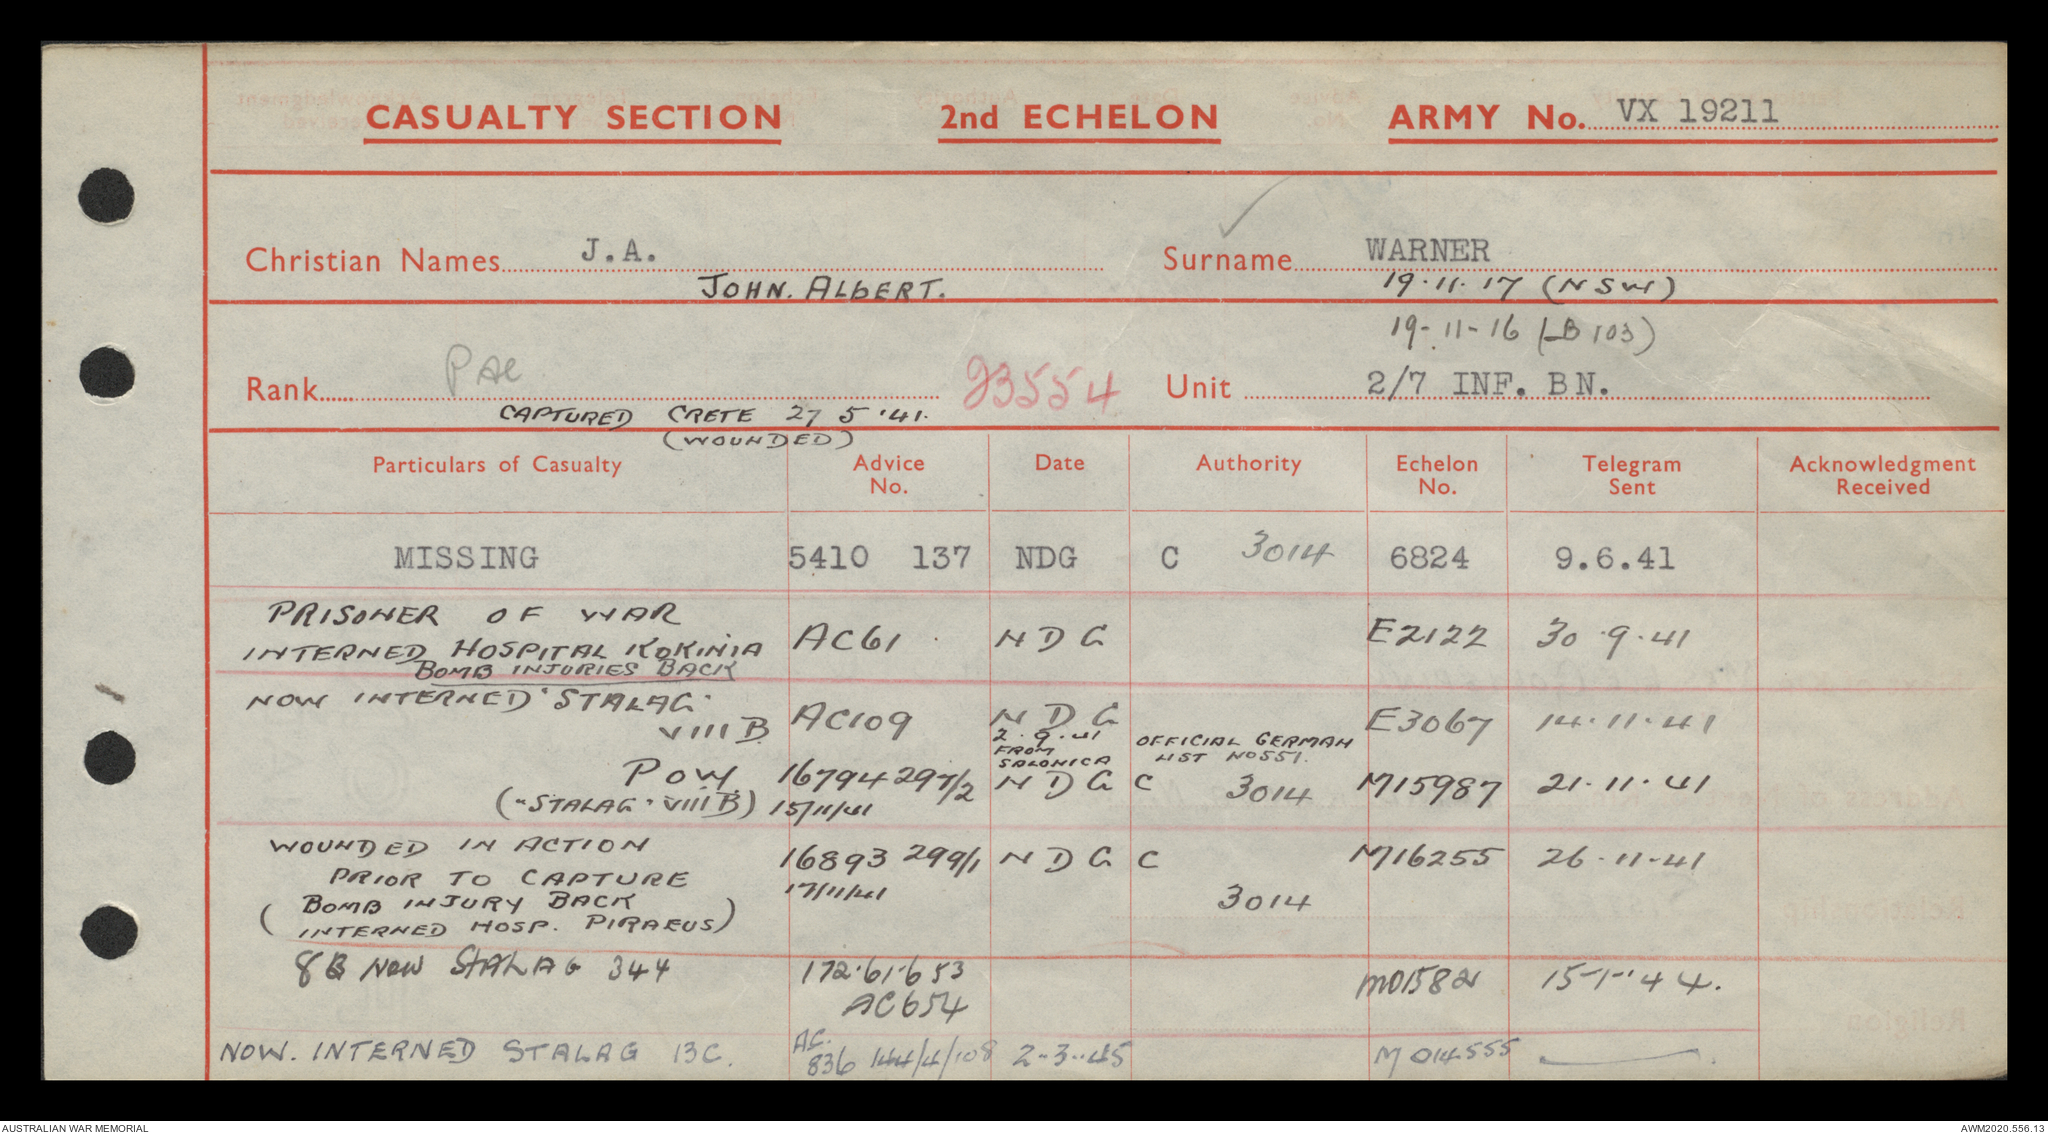 CASUALTY SECTION 2nd ECHELON ARMY No. VX 19211
Christian Names J.A. Surname WARNER
JOHN. ALBERT. 19.11.17 (NSW)
19-11-16 (LB 103)
Rank Pte 23554 Unit 2/7 INF. BN.
CAPTURED CRETE 27 5 '41.
(WOUNDED)
Particulars of Casualty Advice No. Date Authority Echelon No. Telegram Sent Acknowledgment Received
MISSING 5410 137 NDG C 3014 6824 9.6.41
PRISONER OF WAR
INTERNED HOSPITAL KOKINIA AC61 NDG E2122 30.9.41
BOMB INJURIES BACK
NOW INTERNED "STALAG"
VIII B AC109 NDG E3067 14.11.41
2.9.41 FROM SALONICA OFFICIAL GERMAN LIST NO 551.
POW 16794 297/2 NDG C 3014 M15987 21.11.41
("STALAG" VIII B) 15/11/41
WOUNDED IN ACTION 16893 299/1 NDG C M16255 26-11-41
PRIOR TO CAPTURE 17/11/41
(BOMB INJURY BACK 3014
INTERNED HOSP. PIRAEUS)
8B NOW STALAG 344 172.61.653 M015821 15-1-'44.
AC654
NOW. INTERNED STALAG 13C. AC. 836 144/4/108 2-3-45 M014555
AUSTRALIAN WAR MEMORIAL AWM2020.556.13